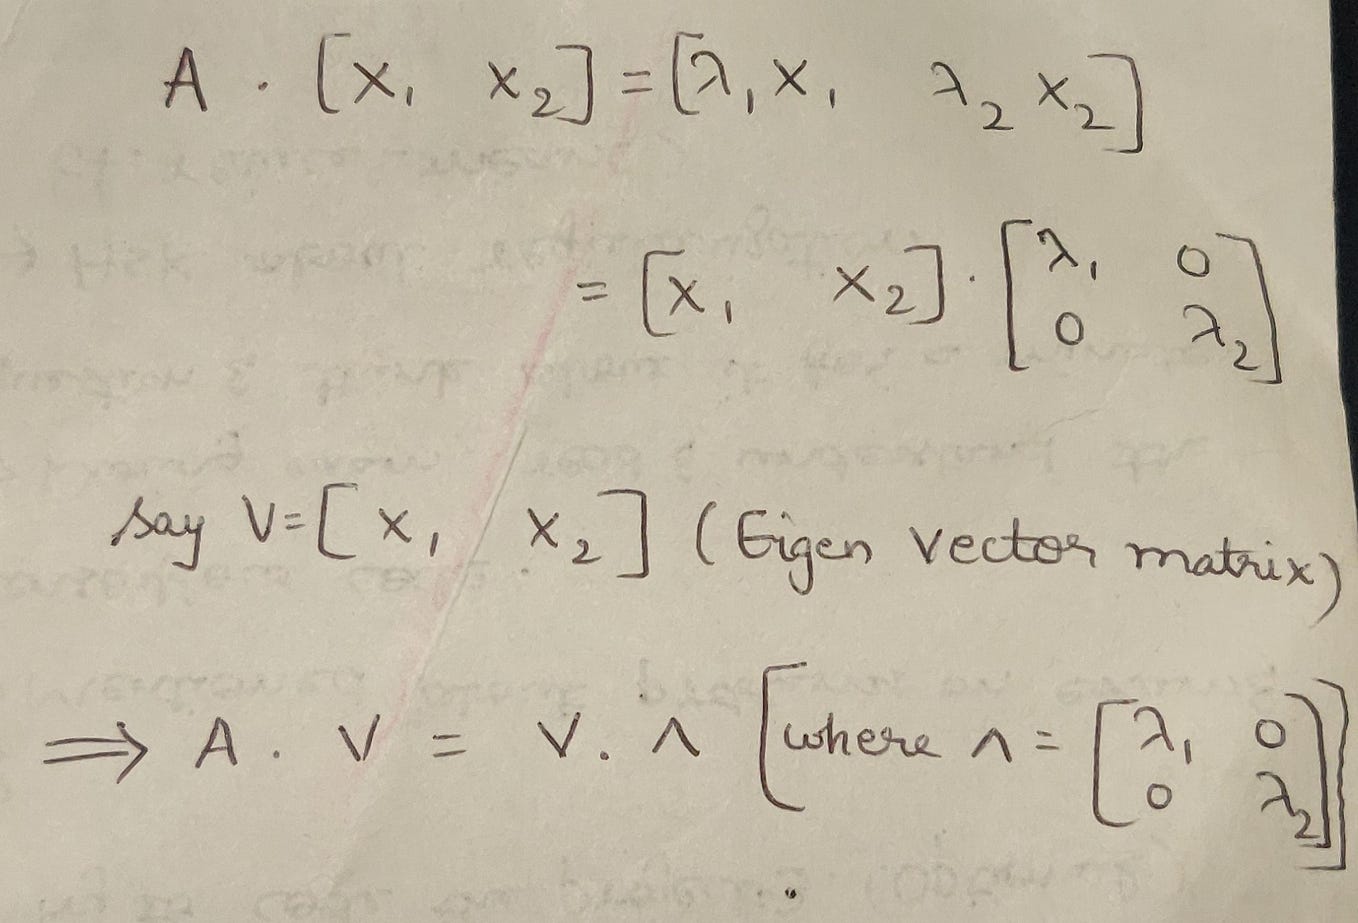 A . [x₁ x₂] = [λ₁x₁ λ₂x₂]
= [x₁ x₂] . [λ₁ 0
0 λ₂]
say V = [x₁ x₂] (Eigen vector matrix)
⟹ A . V = V . Λ [where Λ = [λ₁ 0
0 λ₂]]